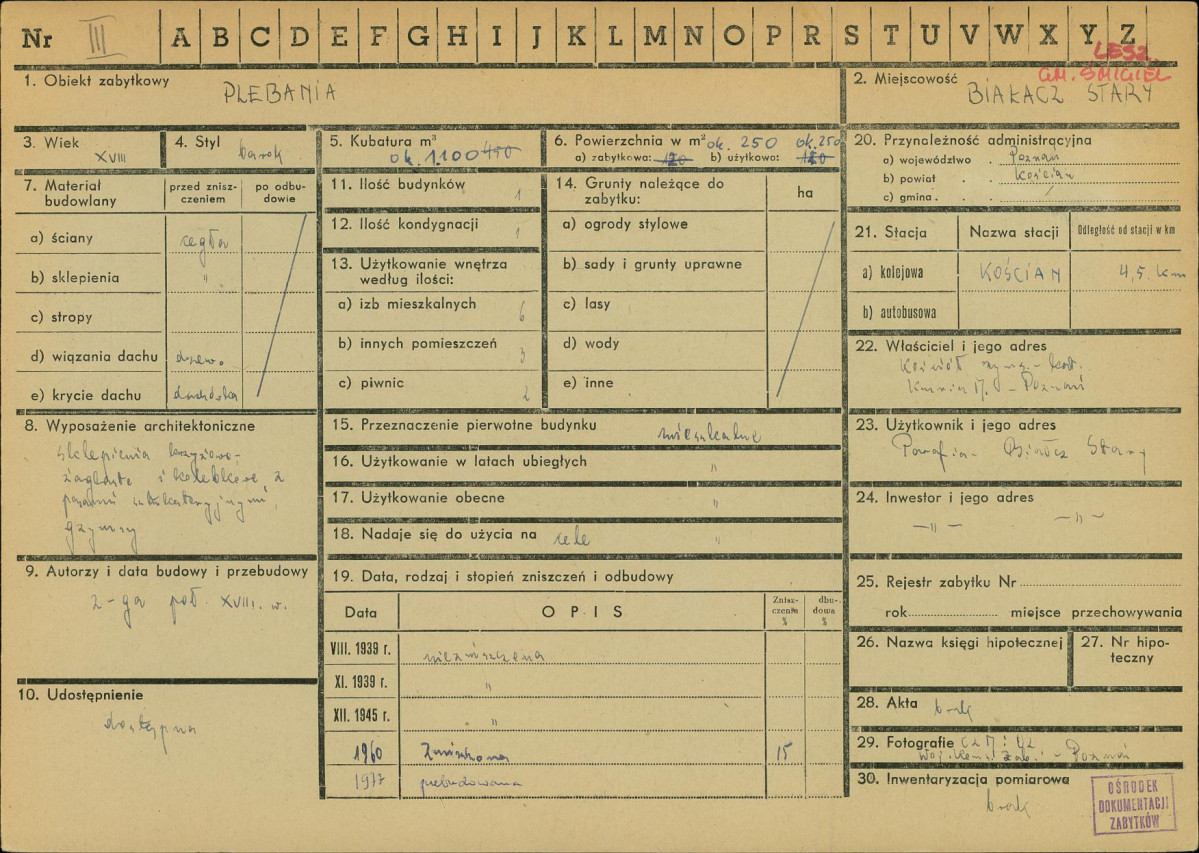 Nr III A B C D E F G H I J K L M N O P R S T U V W X Y Z
LESZ.
GM. ŚMIGIEL
1. Obiekt zabytkowy
PLEBANIA
2. Miejscowość
BIAŁCZ STARY
3. Wiek
XVIII
4. Styl
barok
5. Kubatura m³
ok. 1.100 450
6. Powierzchnia w m² ok. 250 ok. 250
a) zabytkowa: 120 b) użytkowo: 120
20. Przynależność administracyjna
a) województwo Poznań
b) powiat Kościan
c) gmina /
7. Materiał budowlany
przed zniszczeniem
po odbudowie
a) ściany cegła
b) sklepienia "
c) stropy
d) wiązania dachu drewn.
e) krycie dachu dachówka
11. Ilość budynków 1
12. Ilość kondygnacji 1
13. Użytkowanie wnętrza
według ilości:
a) izb mieszkalnych 6
b) innych pomieszczeń 3
c) piwnic 2
14. Grunty należące do
zabytku:
ha
a) ogrody stylowe
b) sady i grunty uprawne
c) lasy
d) wody
e) inne
21. Stacja
Nazwa stacji
Odległość od stacji w km
a) kolejowa KOŚCIAN 4,5 km
b) autobusowa
22. Właściciel i jego adres
Kościół rzym.-kat.
Kuria M. - Poznań
8. Wyposażenie architektoniczne
sklepienia krzyżowo-
żaglaste i kolebkowe z
gzymsy
9. Autorzy i data budowy i przebudowy
2-ga poł. XVIII. w.
10. Udostępnienie
dostępna
15. Przeznaczenie pierwotne budynku mieszkalne
16. Użytkowanie w latach ubiegłych "
17. Użytkowanie obecne "
18. Nadaje się do użycia na cele "
19. Data, rodzaj i stopień zniszczeń i odbudowy
Data
OPIS
Zniszczenia %
dbudowa %
VIII. 1939 r. niezniszczona
XI. 1939 r. "
XII. 1945 r. "
1960 Zniszczona 15
1977 przebudowana
23. Użytkownik i jego adres
Parafia - Białcz Stary
24. Inwestor i jego adres
— " — — " —
25. Rejestr zabytku Nr
rok miejsce przechowywania
26. Nazwa księgi hipotecznej
27. Nr hipoteczny
28. Akta brak
29. Fotografie
Woj. Kons. Zab. - Poznań
30. Inwentaryzacja pomiarowa
brak
OŚRODEK
DOKUMENTACJI
ZABYTKÓW